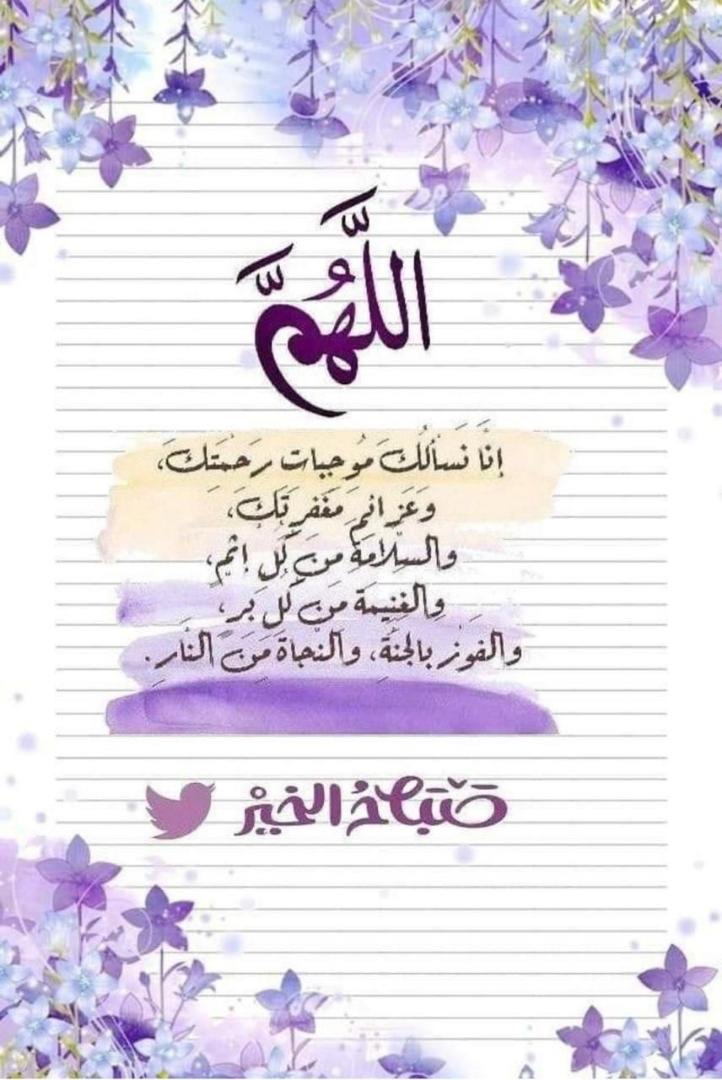 اللَّهُمَّ
إنَّا نَسألُكَ مُوجبات رَحمَتِكَ،
وعَزائمَ مَغفرتِكَ،
والسلامَةَ من كُل إثمٍ،
والغَنِيمَة من كل برٍ،
والفَوز بالجنةِ، والنجاةَ منَ النارِ.
صَبَاحُ الخَيْر